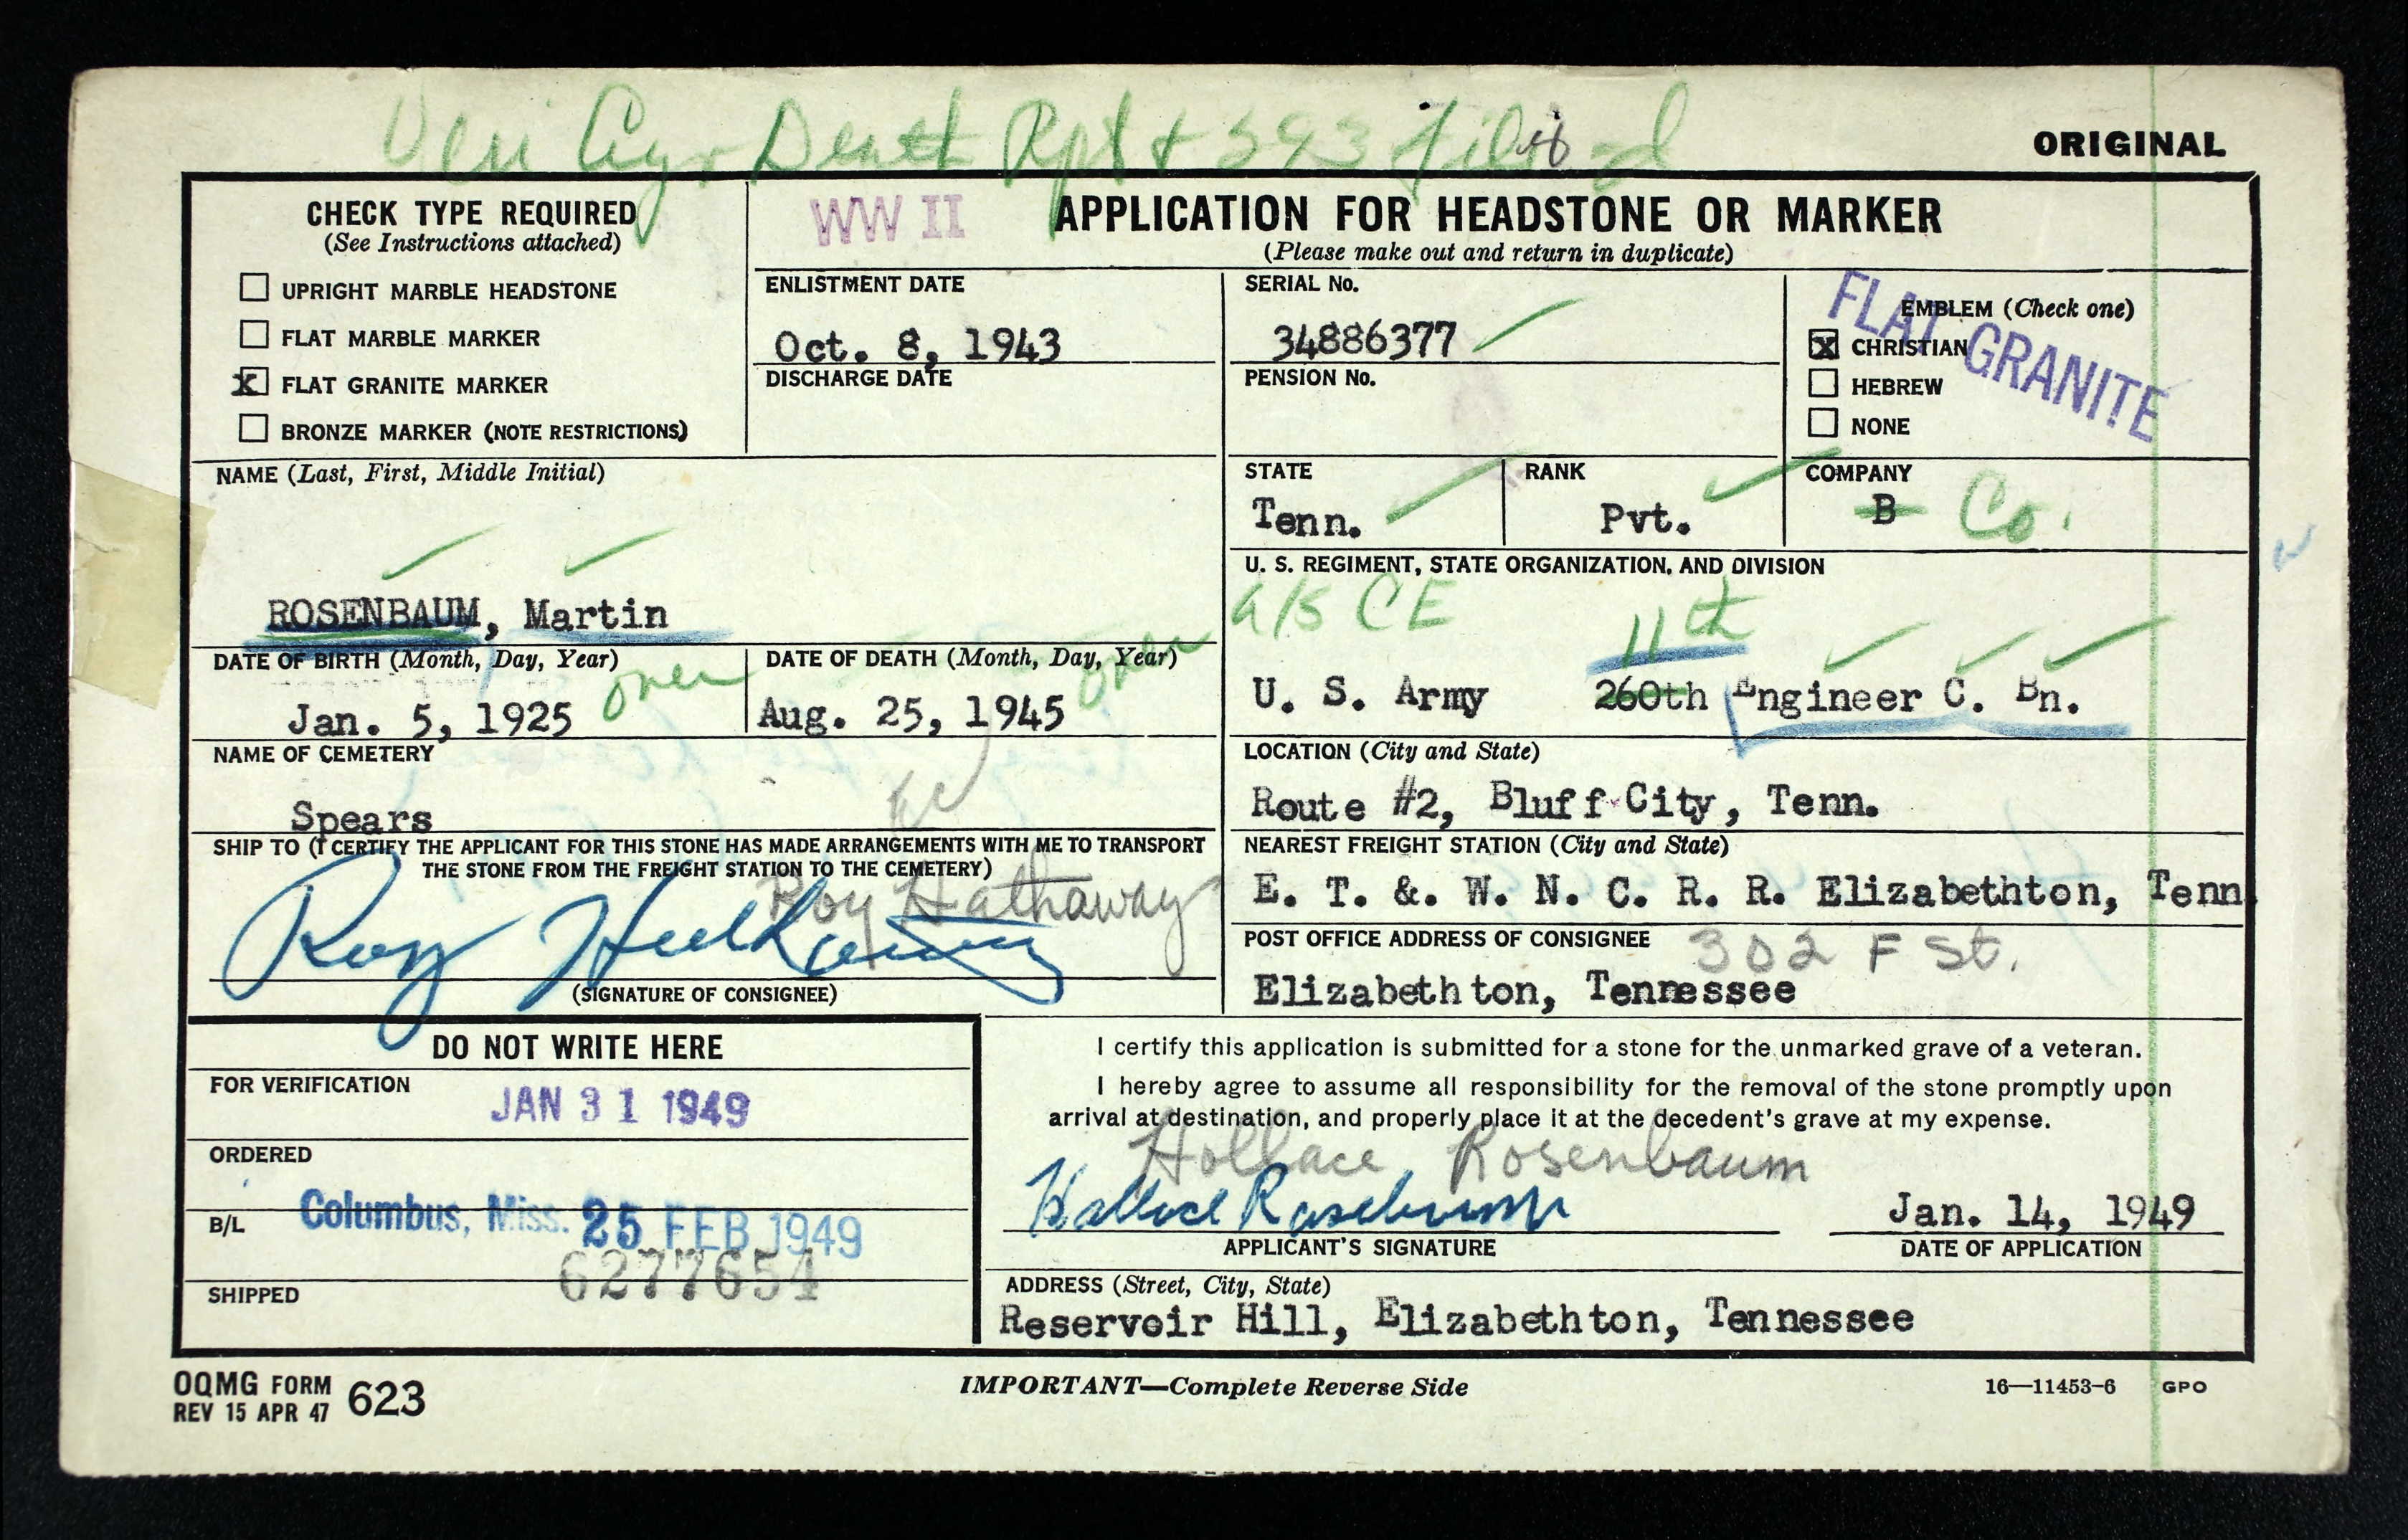 Death Rpt + 393 filed
ORIGINAL
CHECK TYPE REQUIRED
(See Instructions attached)
UPRIGHT MARBLE HEADSTONE
FLAT MARBLE MARKER
X FLAT GRANITE MARKER
BRONZE MARKER (NOTE RESTRICTIONS)
WW II
APPLICATION FOR HEADSTONE OR MARKER
(Please make out and return in duplicate)
ENLISTMENT DATE
Oct. 8, 1943
DISCHARGE DATE
SERIAL No.
34886377
PENSION No.
EMBLEM (Check one)
X CHRISTIAN
HEBREW
NONE
FLAT GRANITE
NAME (Last, First, Middle Initial)
ROSENBAUM, Martin
STATE
Tenn.
RANK
Pvt.
COMPANY
B Co.
U. S. REGIMENT, STATE ORGANIZATION, AND DIVISION
a/s CE
11th
U. S. Army 260th Engineer C. Bn.
DATE OF BIRTH (Month, Day, Year)
over
Jan. 5, 1925
DATE OF DEATH (Month, Day, Year)
over
Aug. 25, 1945
NAME OF CEMETERY
Spears
LOCATION (City and State)
Route #2, Bluff City, Tenn.
SHIP TO (I CERTIFY THE APPLICANT FOR THIS STONE HAS MADE ARRANGEMENTS WITH ME TO TRANSPORT
THE STONE FROM THE FREIGHT STATION TO THE CEMETERY)
Roy Hathaway
Roy Hathaway
(SIGNATURE OF CONSIGNEE)
NEAREST FREIGHT STATION (City and State)
E. T. &. W. N. C. R. R. Elizabethton, Tenn.
POST OFFICE ADDRESS OF CONSIGNEE
302 F St.
Elizabethton, Tennessee
DO NOT WRITE HERE
FOR VERIFICATION
JAN 31 1949
ORDERED
B/L
Columbus, Miss. 25 FEB 1949
6277654
SHIPPED
I certify this application is submitted for a stone for the unmarked grave of a veteran.
I hereby agree to assume all responsibility for the removal of the stone promptly upon
arrival at destination, and properly place it at the decedent's grave at my expense.
Hollace Rosenbaum
Hallace Rosebaum
APPLICANT'S SIGNATURE
Jan. 14, 1949
DATE OF APPLICATION
ADDRESS (Street, City, State)
Reservoir Hill, Elizabethton, Tennessee
OQMG FORM
REV 15 APR 47 623
IMPORTANT—Complete Reverse Side
16—11453-6 GPO